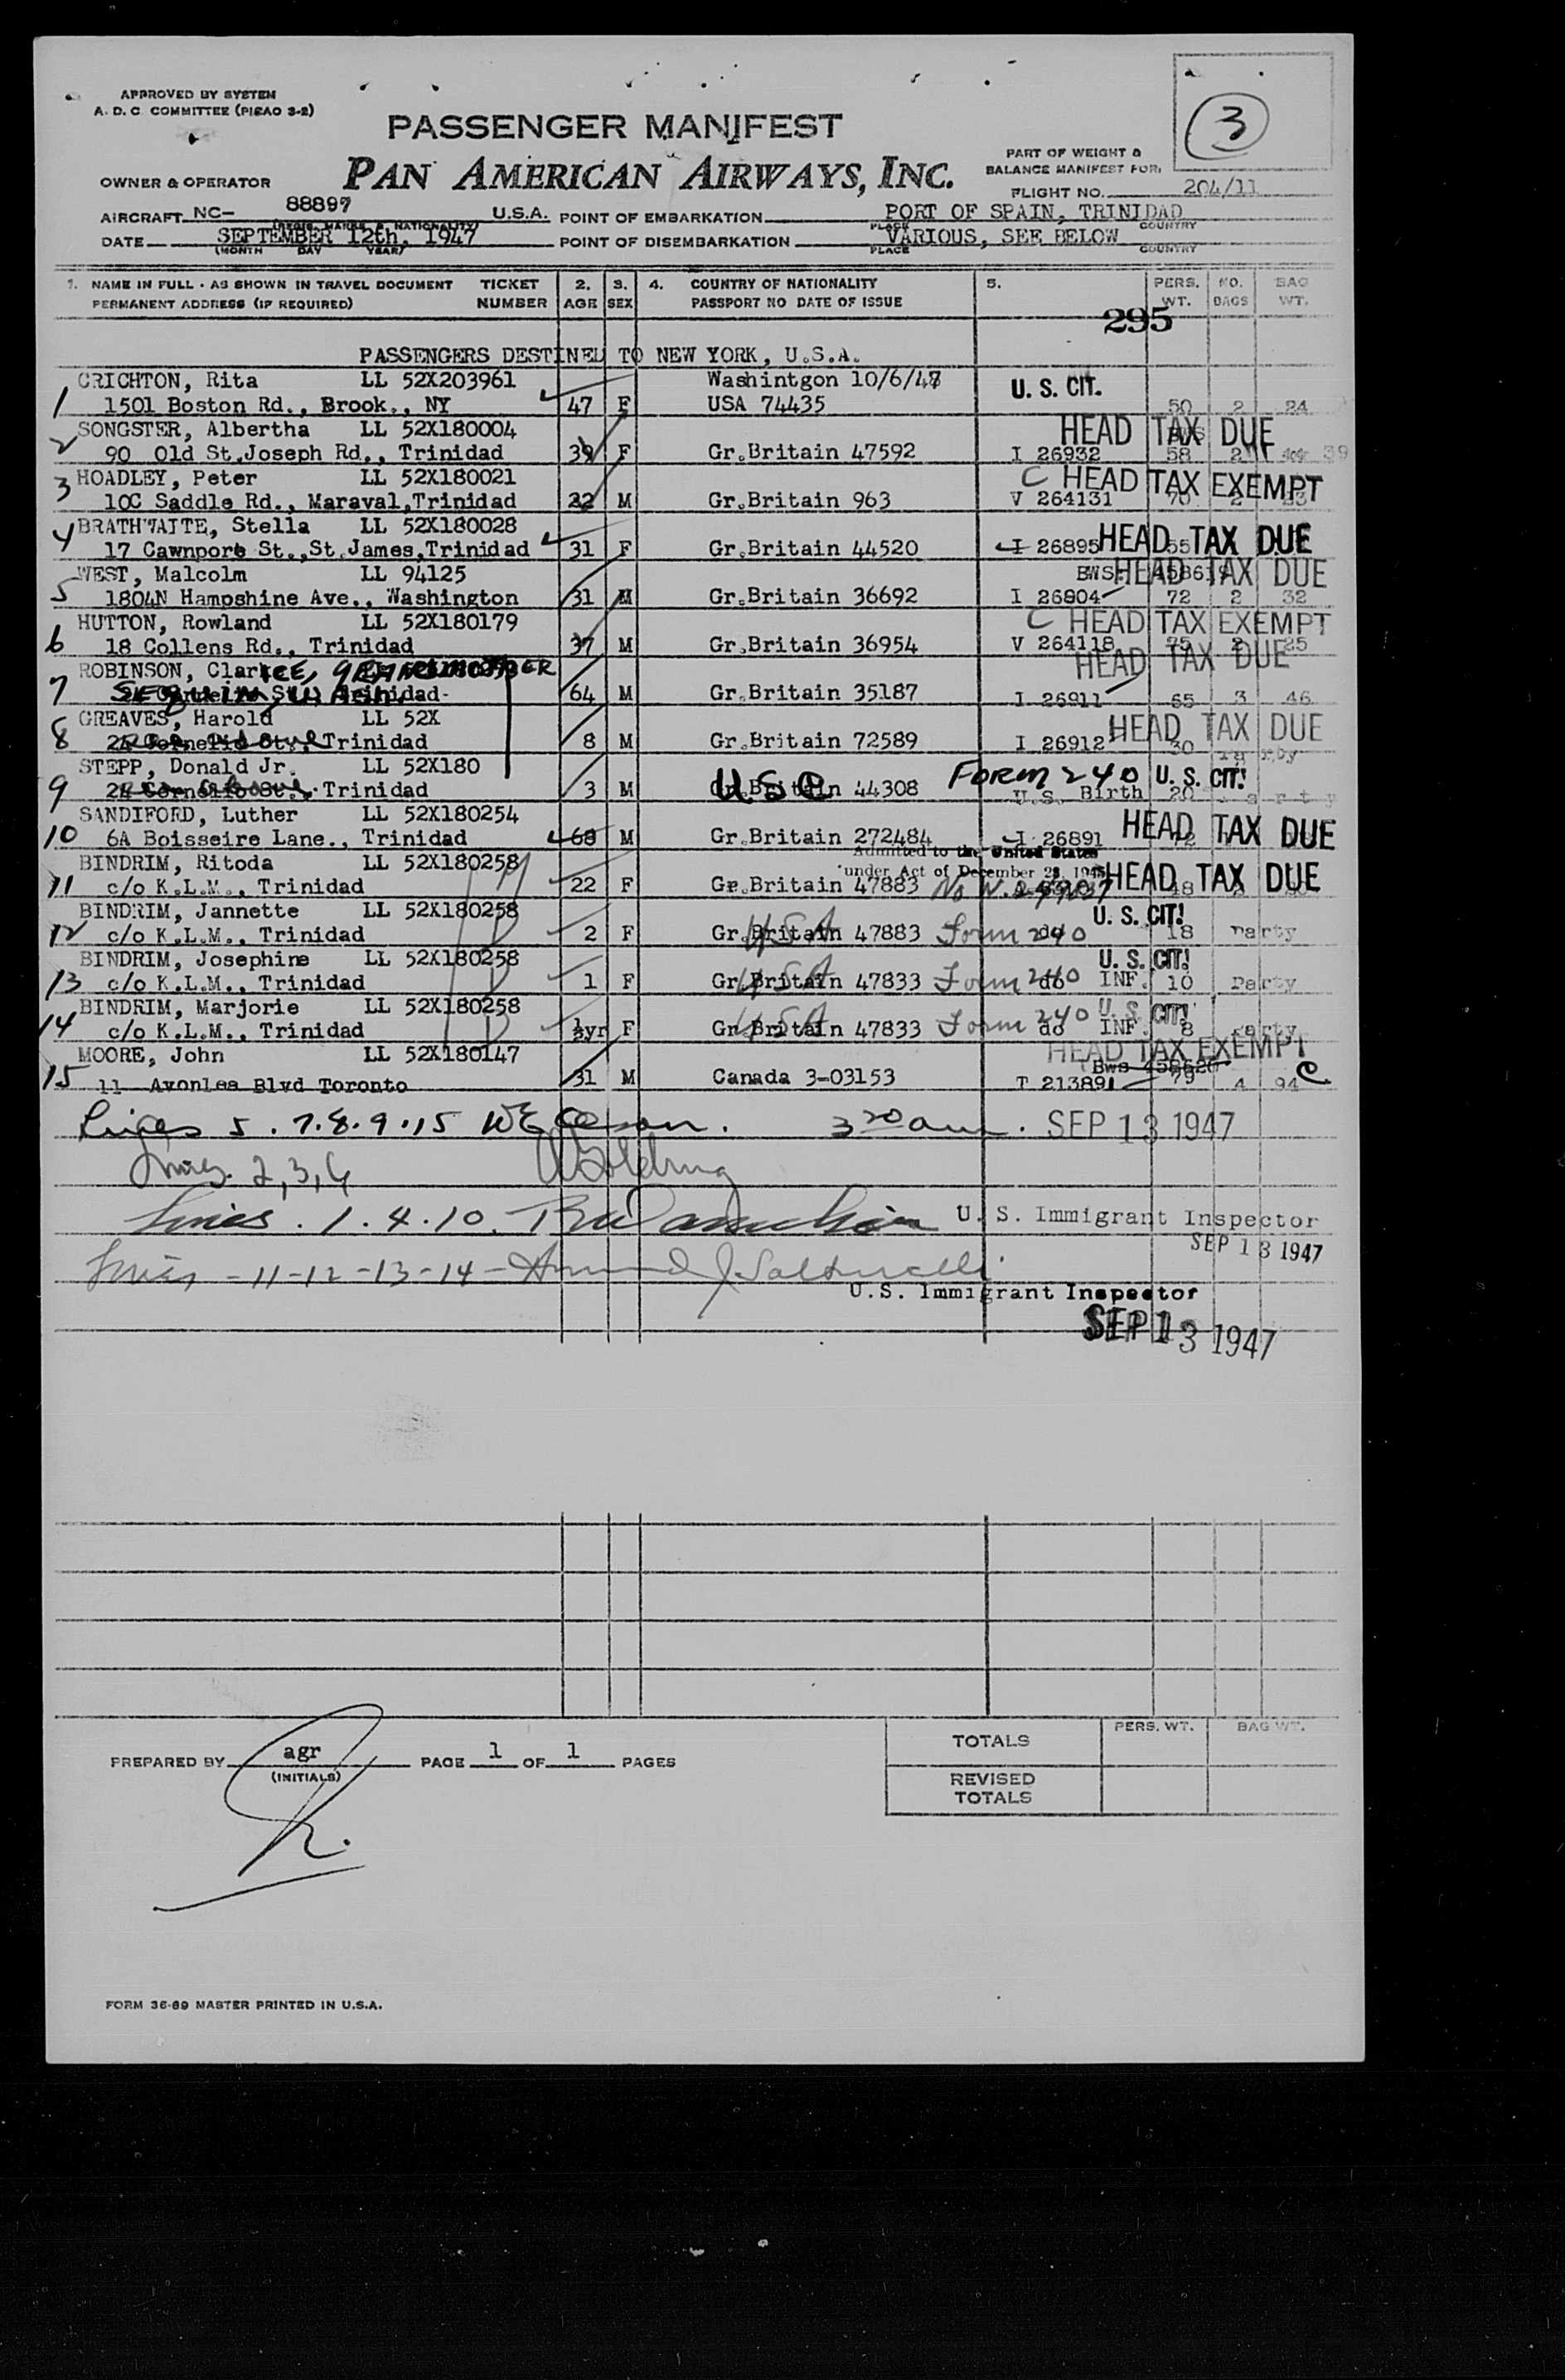 APPROVED BY SYSTEM
A. D. C. COMMITTEE (PICAO 3-2)
3
PASSENGER MANIFEST
PAN AMERICAN AIRWAYS, INC.
PART OF WEIGHT &
BALANCE MANIFEST FOR:
OWNER & OPERATOR
FLIGHT NO. 204/11
AIRCRAFT NC- 88897 U.S.A. POINT OF EMBARKATION PORT OF SPAIN, TRINIDAD
(REGIS. MARKS & NATIONALITY) PLACE COUNTRY
DATE SEPTEMBER 12th, 1947 POINT OF DISEMBARKATION VARIOUS, SEE BELOW
(MONTH DAY YEAR) PLACE COUNTRY
1. NAME IN FULL - AS SHOWN IN TRAVEL DOCUMENT TICKET 2. 3. 4. COUNTRY OF NATIONALITY 5. PERS. NO. BAG
PERMANENT ADDRESS (IF REQUIRED) NUMBER AGE SEX PASSPORT NO DATE OF ISSUE WT. BAGS WT.
295
PASSENGERS DESTINED TO NEW YORK, U.S.A.
CRICHTON, Rita LL 52X203961 Washintgon 10/6/47 U. S. CIT.
1 1501 Boston Rd., Brook., NY 47 F USA 74435 50 2 24
SONGSTER, Albertha LL 52X180004 HEAD TAX DUE
2 90 Old St.Joseph Rd., Trinidad 39 F Gr.Britain 47592 I 26932 58 2 39
HOADLEY, Peter LL 52X180021 C HEAD TAX EXEMPT
3 10C Saddle Rd., Maraval,Trinidad 32 M Gr.Britain 963 V 264131 70 2
BRATHWAITE, Stella LL 52X180028
4 17 Cawnpore St.,St.James,Trinidad 31 F Gr.Britain 44520 I 26895 HEAD TAX DUE 55
WEST, Malcolm LL 94125 BWS HEAD TAX DUE
5 1804N Hampshine Ave., Washington 31 M Gr.Britain 36692 I 26804 72 2 32
HUTTON, Rowland LL 52X180179 C HEAD TAX EXEMPT
6 18 Collens Rd., Trinidad 37 M Gr.Britain 36954 V 264118 75 2 25
ROBINSON, Clarice, GRANDMOTHER HEAD TAX DUE
7 Trinidad 64 M Gr.Britain 35187 I 26911 65 3 46
GREAVES, Harold LL 52X HEAD TAX DUE
8 24 Cornelio St., Trinidad 8 M Gr.Britain 72589 I 26912 30
STEPP, Donald Jr. LL 52X180 FORM 240 U. S. CIT!
9 24 Cornelio St., Trinidad 3 M USA Gr.Britain 44308 U.S. Birth 20 party
SANDIFORD, Luther LL 52X180254 HEAD TAX DUE
10 6A Boisseire Lane., Trinidad 68 M Gr.Britain 272484 I 26891 72
BINDRIM, Ritoda LL 52X180258 Admitted to the United States
under Act of December 28, 1945 HEAD TAX DUE
11 c/o K.L.M., Trinidad 22 F Gr.Britain 47883 48
BINDRIM, Jannette LL 52X180258 U. S. CIT!
12 c/o K.L.M., Trinidad 2 F USA Gr.Britain 47883 Form 240 do 18 Party
BINDRIM, Josephine LL 52X180258 U. S. CIT!
13 c/o K.L.M., Trinidad 1 F USA Gr.Britain 47833 Form 240 do INF. 10 Party
BINDRIM, Marjorie LL 52X180258 U. S. CIT!
14 c/o K.L.M., Trinidad ½yr F USA Gr.Britain 47833 Form 240 do INF. 8 Party
MOORE, John LL 52X180147 HEAD TAX EXEMPT
Bws 458626
15 11 Avonlea Blvd Toronto 31 M Canada 3-03153 T 213891 79 4 94 C
Lines 5. 7. 8. 9. 15 3 20 am. SEP 13 1947
Lines. 2, 3, 6 Golding
Lines. 1. 4. 10. U. S. Immigrant Inspector
SEP 13 1947
Lines - 11-12-13-14 -
U.S. Immigrant Inspector
SEP 13 1947
TOTALS PERS. WT. BAG WT.
PREPARED BY agr PAGE 1 OF 1 PAGES
(INITIALS)
REVISED
TOTALS
FORM 36-69 MASTER PRINTED IN U.S.A.